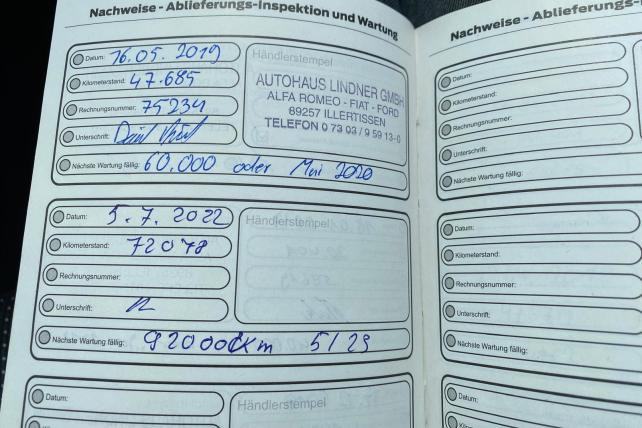 Nachweise - Ablieferungs-Inspektion und Wartung
Datum: 16.05.2019
Kilometerstand: 47.685
Rechnungsnummer: 75234
Unterschrift:
Nächste Wartung fällig: 60.000 oder Mai 2020
Händlerstempel
AUTOHAUS LINDNER GMBH
ALFA ROMEO - FIAT - FORD
89257 ILLERTISSEN
TELEFON 0 73 03 / 9 59 13-0
Datum: 5.7.2022
Kilometerstand: 72078
Rechnungsnummer:
Unterschrift:
Nächste Wartung fällig: 92000 km 5/23
Händlerstempel
Datum:
Händlerstempel
Nachweise - Ablieferungs-
Datum:
Kilometerstand:
Rechnungsnummer:
Unterschrift:
Nächste Wartung fällig:
Datum:
Kilometerstand:
Rechnungsnummer:
Unterschrift:
Nächste Wartung fällig:
Datum: